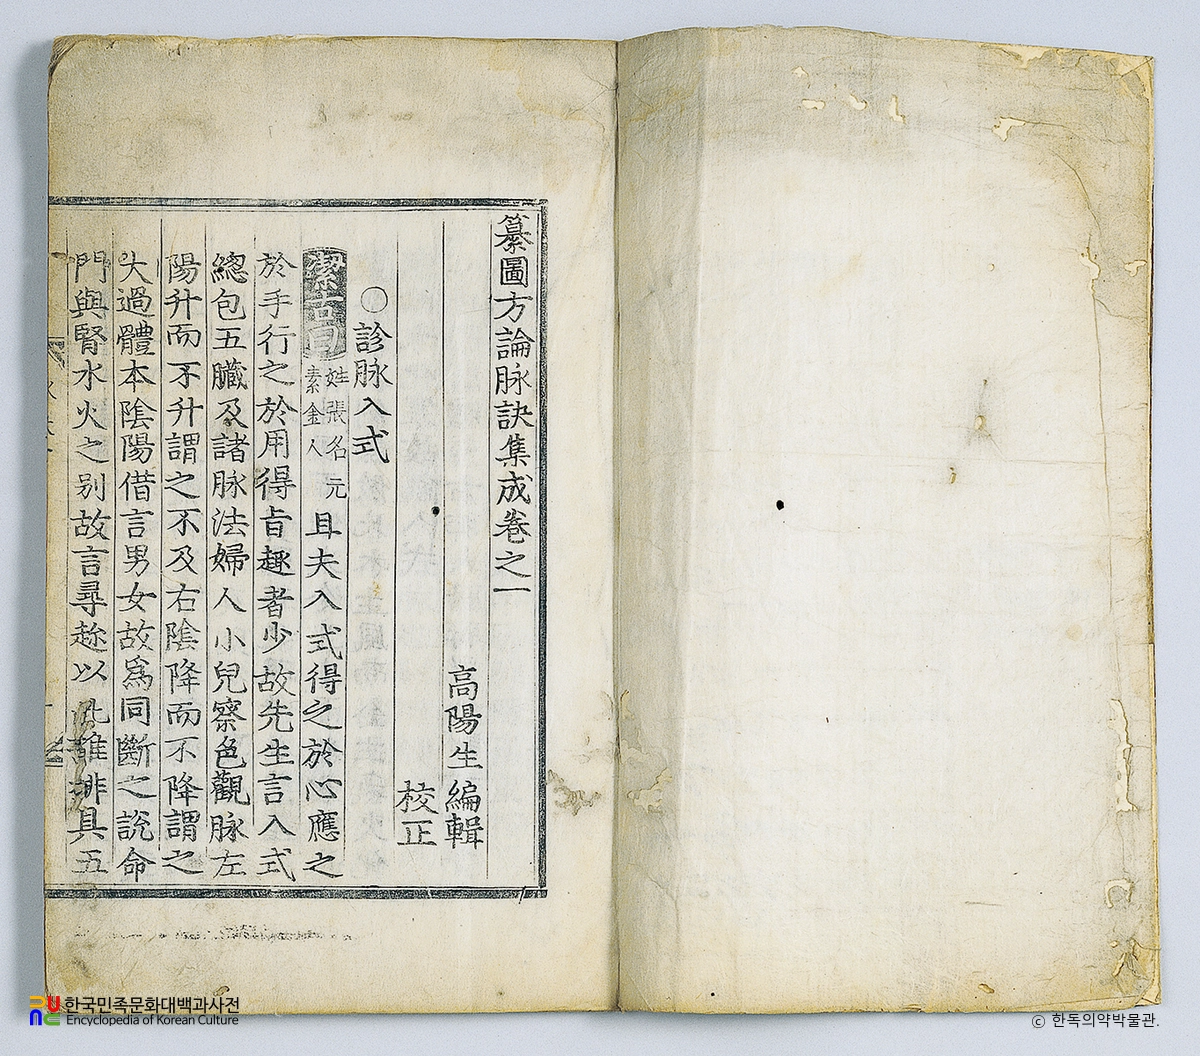 纂圖方論脉訣集成卷之一
高陽生編輯
校正
○診脉入式
潔古曰 姓張名元素金人 且夫入式得之於心應之
於手行之於用得旨趣者少故先生言入式
總包五臟及諸脉法婦人小兒察色觀脉左
陽升而不升謂之不及右陰降而不降謂之
大過體本陰陽借言男女故爲同斷之說命
門與腎水火之别故言尋趂以此推排具五
한국민족문화대백과사전
Encyclopedia of Korean Culture
ⓒ 한독의약박물관.